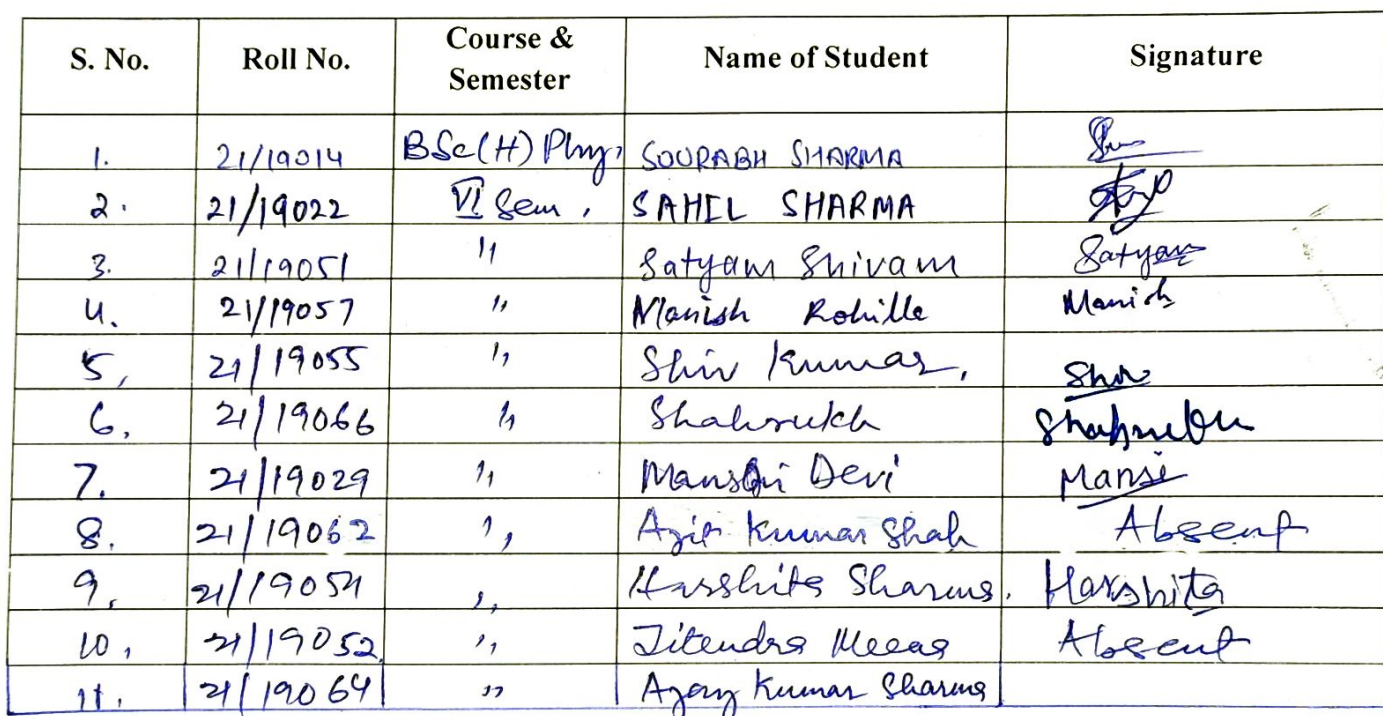 S. No. Roll No. Course & Semester Name of Student Signature
1. 21/19014 BSc(H) Phy, SOURABH SHARMA
2. 21/19022 VI Sem, SAHIL SHARMA
3. 21/19051 " Satyam Shivam Satyam
4. 21/19057 " Manish Rohilla Manish
5, 21/19055 " Shiv Kumar, Shiv
6, 21/19066 " Shahrukh Shahrukh
7. 21/19029 " Devi Mansi
8. 21/19062 " Kumar Shah Absent
9, 21/19054 " Harshita Sharma. Harshita
10, 21/19052 " Jitendra Meena Absent
11. 21/19064 " Ajay Kumar Sharma